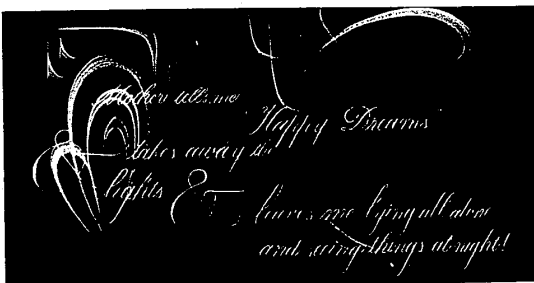 Mother tells me
Happy Dreams
takes away the
lights &
leaves me lying all alone
and seing things at night!